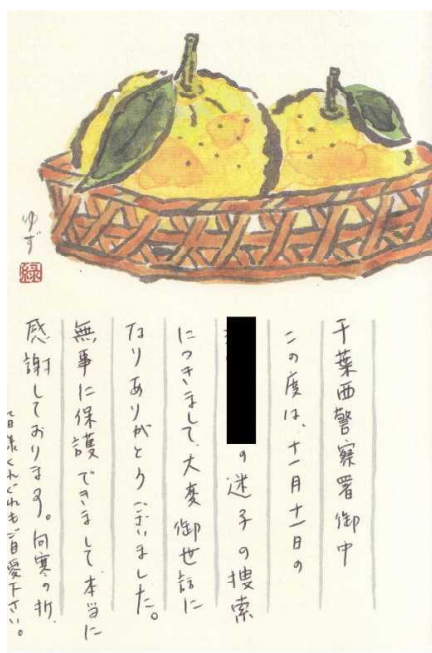 ゆず
緑
千葉西警察署御中
この度は、十一月十一日の
の迷子の捜索
につきまして、大変御世話に
なりありがとうございました。
無事に保護できまして本当に
感謝しております。向寒の折、
皆様くれぐれもご自愛下さい。